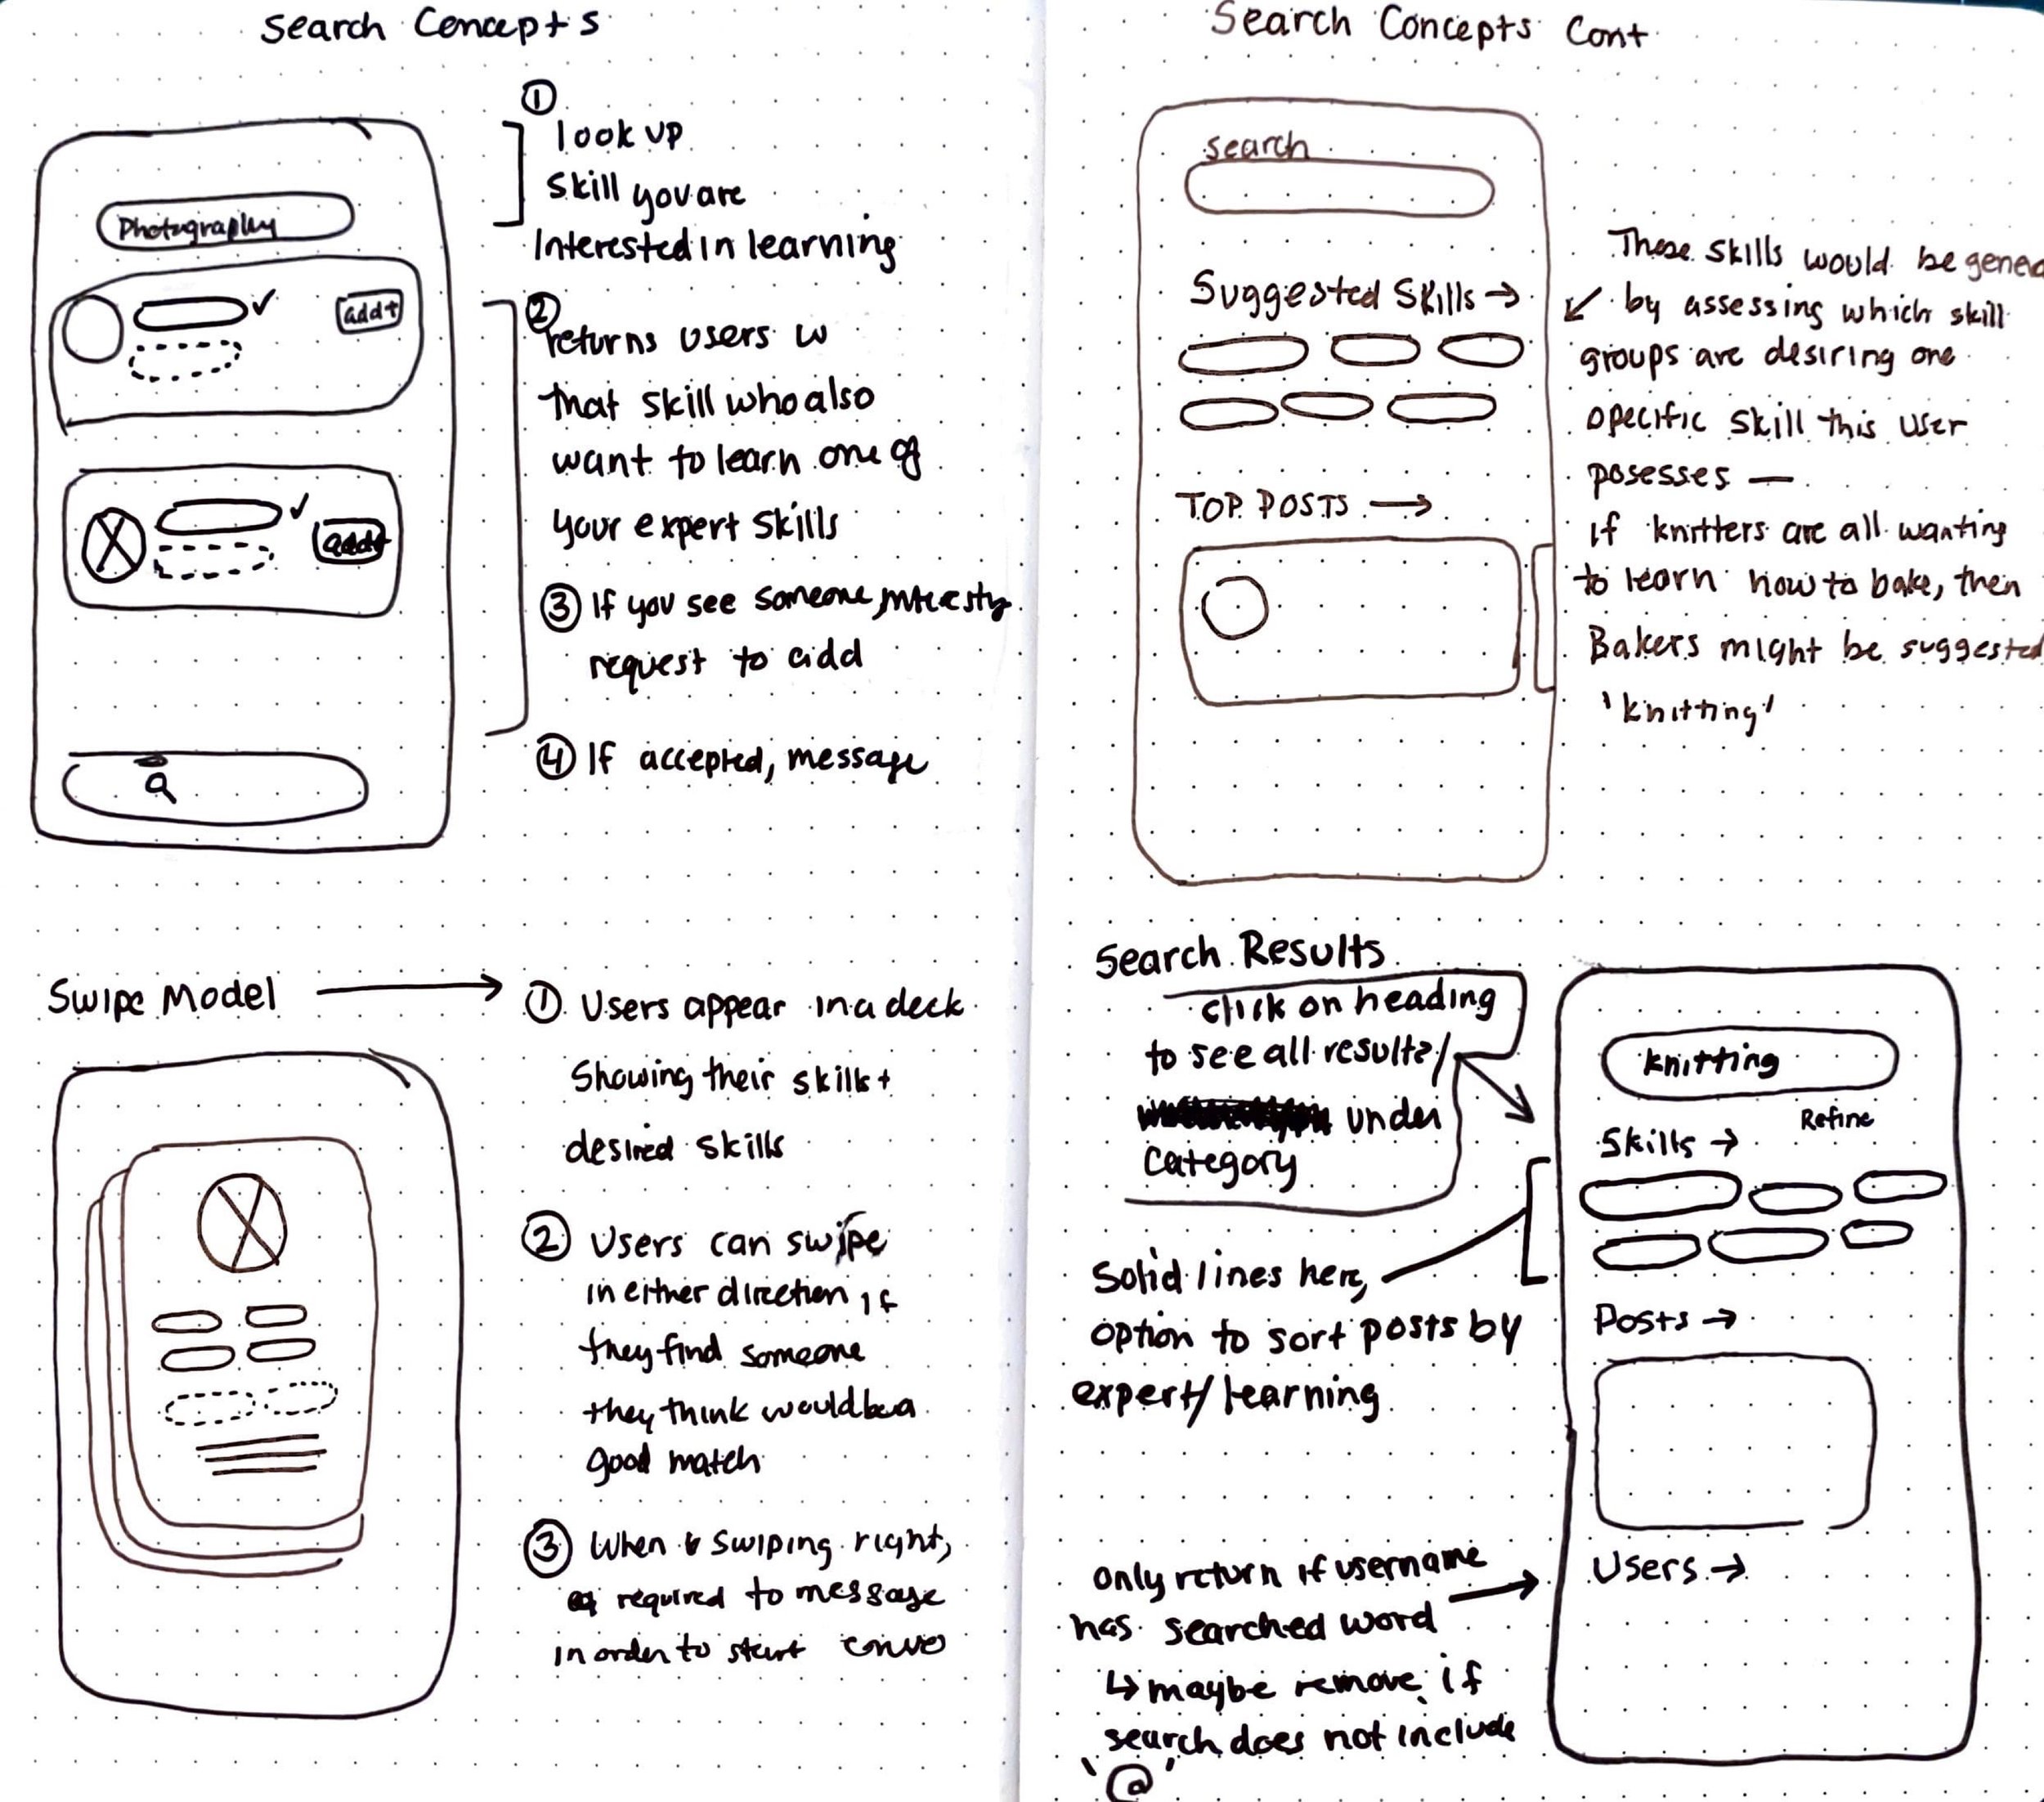 Search Concepts
Photography
add+
add+
①
look up
skill you are
Interested in learning
②
returns users w
that skill who also
want to learn one of
your expert skills
③ If you see someone
request to add
④ If accepted, message
Swipe Model
① Users appear in a deck
Showing their skills +
desired skills
② Users can swipe
in either direction if
they find someone
they think would be a
good match
③ When swiping right,
required to message
in order to start convo
Search Concepts Cont
search
Suggested Skills →
TOP POSTS →
These skills would be genera
↙ by assessing which skill
groups are desiring one
specific skill this user
posesses —
if knitters are all wanting
to learn how to bake, then
Bakers might be suggested
'knitting'
Search Results
click on heading
to see all results/
under
category
Solid lines here,
option to sort posts by
expert/learning
only return if username
has searched word
↳ maybe remove if
search does not include
'@'
knitting
Refine
Skills →
Posts →
Users →